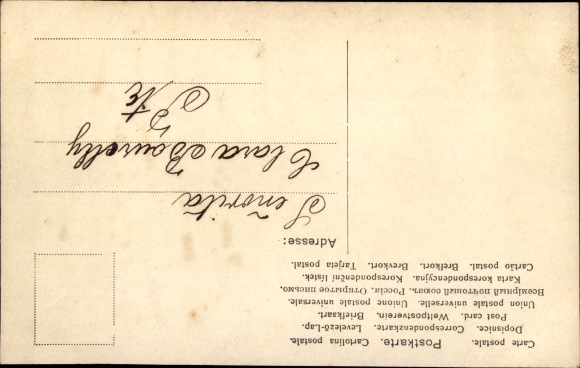 Carte postale. Postkarte. Cartolina postale.
Dopisnice. Correspondenzkarte. Levelező-Lap.
Post card. Weltpostverein. Briefkaart.
Union postale universelle. Unione postale universale.
Всемірный почтовый союзъ. Россія. Открытое письмо.
Karta korespondencyjna. Korespondenční lístek.
Cartão postal. Brefkort. Brevkort. Tarjeta postal.
Adresse:
Señorita
Clara Bourelly
Pte